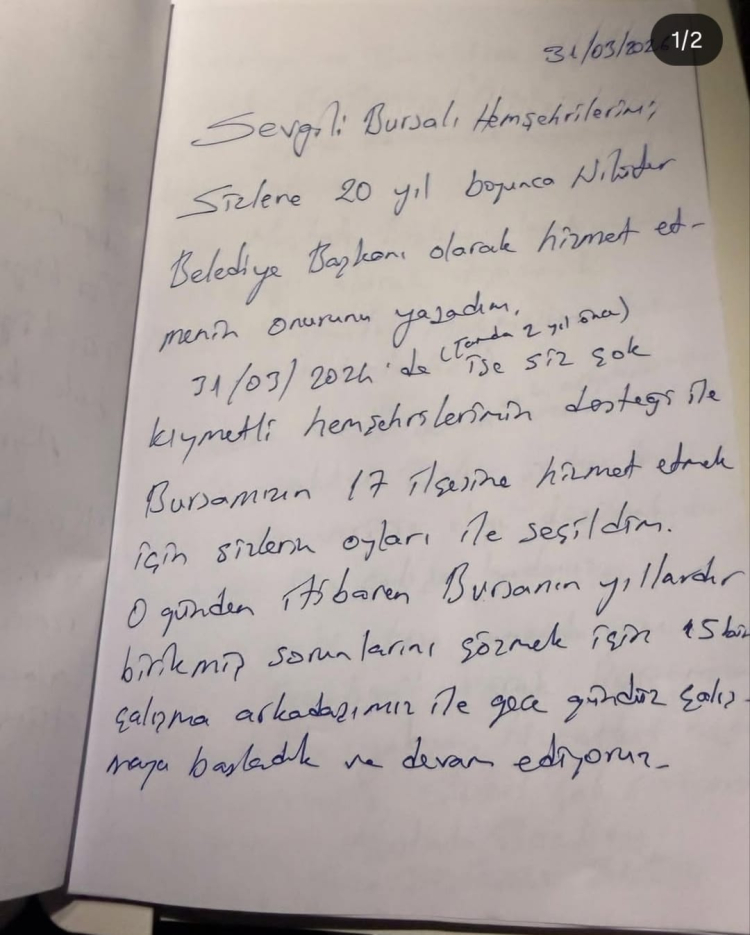 1/2
31/03/202
Sevgili Bursalı Hemşehrilerim,
Sizlere 20 yıl boyunca Nilüfer
Belediye Başkanı olarak hizmet et-
menin onurunu yaşadım.
(Tamda 2 yıl önce)
31/03/2024'de ise siz çok
kıymetli hemşehrilerimin desteği ile
Bursamızın 17 ilçesine hizmet etmek
için sizlerin oyları ile seçildim.
O günden itibaren Bursanın yıllardır
birikmiş sorunlarını çözmek için 15 bin
çalışma arkadaşımız ile gece gündüz çalış-
maya başladık ve devam ediyoruz.